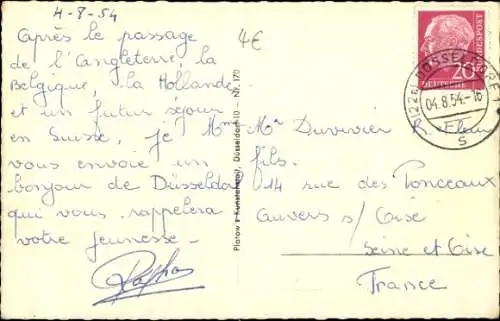 4-8-54
4€
Après le passage
de l'Angleterre, la
Belgique, la Hollande
et un futur séjour
en Suisse, je
vous envoie un
bonjour de Düsseldorf
qui vous rappelera
votre jeunesse -
Platow's Kunstverlag, Düsseldorf 10 - Nr. 170
DEUTSCHE BUNDESPOST
20
(22a) DÜSSELDORF
04.8.54.-16
s
Mme Mr Duvivier R. Fleury
fils.
14 rue des Ponceaux
Auvers s/ Oise
Seine et Oise
France